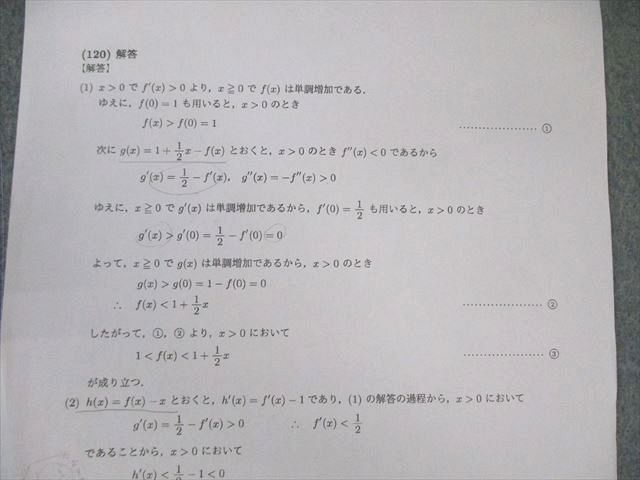 (120) 解答
【解答】
(1) x > 0 で f′(x) > 0 より, x ≧ 0 で f(x) は単調増加である.
ゆえに, f(0) = 1 も用いると, x > 0 のとき
f(x) > f(0) = 1 ………………… ①
次に g(x) = 1 + 1/2 x − f(x) とおくと, x > 0 のとき f″(x) < 0 であるから
g′(x) = 1/2 − f′(x), g″(x) = −f″(x) > 0
ゆえに, x ≧ 0 で g′(x) は単調増加であるから, f′(0) = 1/2 も用いると, x > 0 のとき
g′(x) > g′(0) = 1/2 − f′(0) = 0
よって, x ≧ 0 で g(x) は単調増加であるから, x > 0 のとき
g(x) > g(0) = 1 − f(0) = 0
∴ f(x) < 1 + 1/2 x ………………… ②
したがって, ①, ② より, x > 0 において
1 < f(x) < 1 + 1/2 x ………………… ③
が成り立つ.
(2) h(x) = f(x) − x とおくと, h′(x) = f′(x) − 1 であり, (1) の解答の過程から, x > 0 において
g′(x) = 1/2 − f′(x) > 0 ∴ f′(x) < 1/2
であることから, x > 0 において
h′(x) < 1/2 − 1 < 0